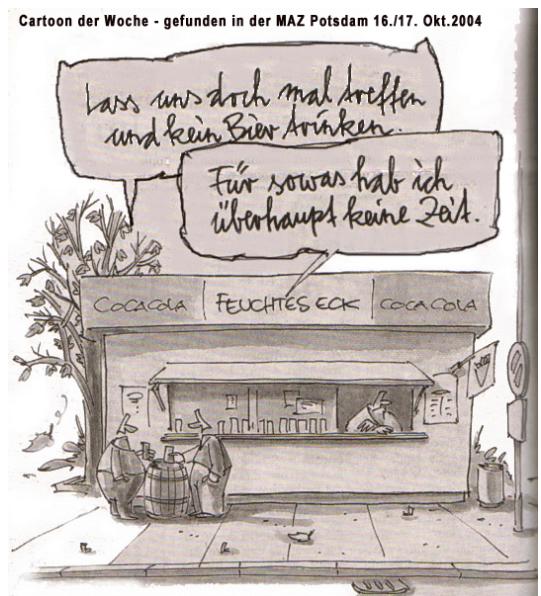 Cartoon der Woche - gefunden in der MAZ Potsdam 16./17. Okt.2004
Lass uns doch mal treffen
und kein Bier trinken.
Für sowas hab ich
überhaupt keine Zeit.
COCACOLA FEUCHTES ECK COCACOLA